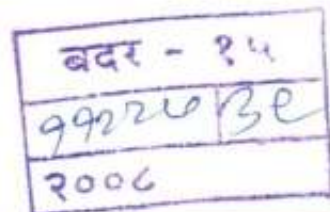 बदर - १५
११२२७ ३९
२००८